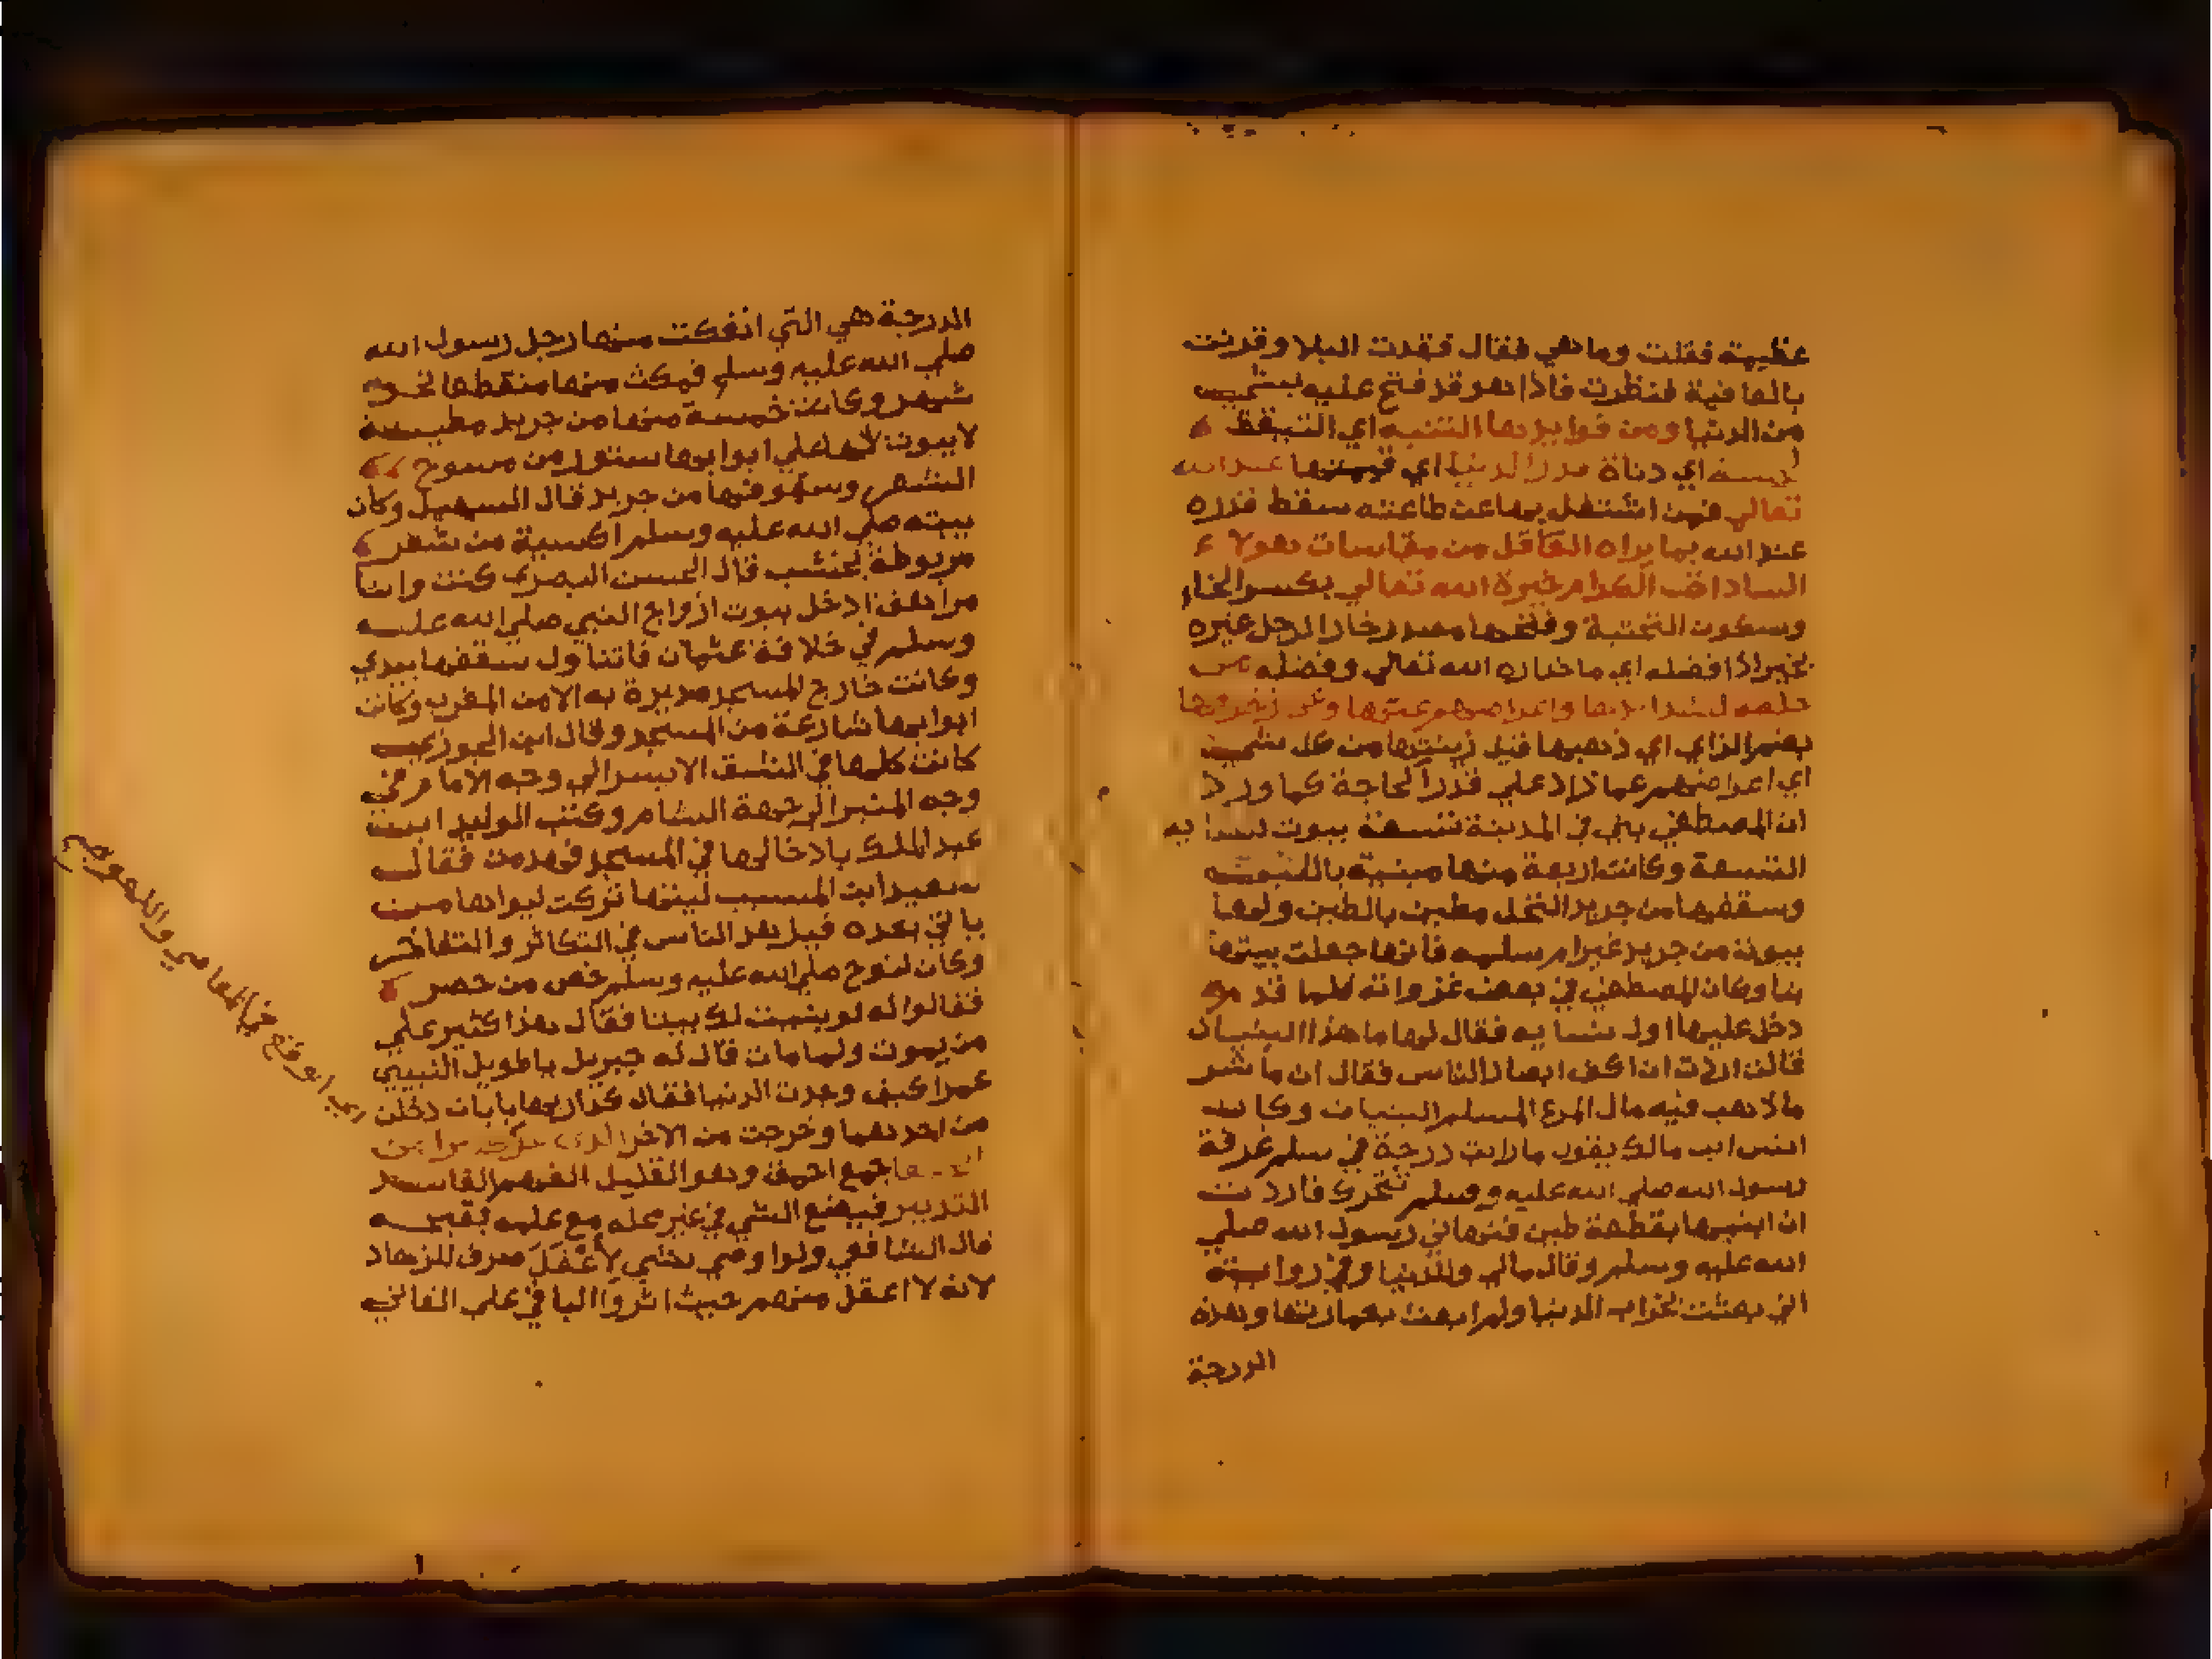 عظيمة فقلت وما هي فقال فقدت البلا وقرنت
بالعافية فنظرت فاذا هو قد فتح عليه بشي
من الدنيا ومن فوايدها التنبه اي التيقظ
لخسة اي دناة قدر الدنيا اي قيمتها عند الله
تعالي فمن اشتغل بها عن طاعته سقط قدره
عند الله بما يراه العاقل من مقاسات هولا
السادات الكرام خيرة الله تعالي بكسر الخا
وسكون التحتية وفتحها مصدر خار الرجل غيره
يخير اذا فضله اي ما ختاره الله تعالي وفضله من
خلقه لشدايدها واعراضهم عنها وعن زخرفها
بضم الزاي اي ذهبها قيل زينتها من كل شي
اي اعراضهم عما زاد علي قدر الحاجة كما ورد
ان المصطفي بني في المدينة تسعة بيوت لنسايه
التسعة وكانت اربعة منها مبنية باللبن
وسقفها من جريد النخل مطين بالطين ولها
بيوت من جريد غير ام سلمه فانها جعلت بيتها
بنا وكان المصطفي في بعض غزواته فلما قدم
دخل عليها اول نسايه فقال لها ما هذا البنيان
قالت اردت ان اكف ابصار الناس فقال ان ما شر
ما ذهب فيه مال المرع المسلم البنيان وكان
انس ابن مالك يقول مارايت درجة في سلم غرفة
رسول الله صلي الله عليه وسلم تتحرك فاردت
ان ابنيها بقطعة طين فنهاني رسول الله صلي
الله عليه وسلم وقال مالي وللدنيا وفي رواية
اني بعثت لخراب الدنيا ولم ابعث بعمارتها وهذه
الدرجة
الدرجة هي التي انفكت منها رجل رسول الله
صلي الله عليه وسلم فمكث منها منقطعا نحو
شهر وكانت خمسة منها من جريد مطينة
لا بيوت لها علي ابوابها ستور من مسوح
الشعر وسقوفها من جريد قال السهيل وكان
بيته صلي الله عليه وسلم اكسية من شعر
مربوطة بخشب قال الحسن البصري كنت وانا
مراهق ادخل بيوت ازواج النبي صلي الله عليه
وسلم في خلافة عثمان فاتناول سقفها بيدي
وكانت خارج المسجد مديرة به الا من المغرب وكانت
ابوابها شارعة من المسجد وقال ابن الجوزي
كانت كلها في الشق الايسر الي وجه الامام في
وجه المنبر الي جهة الشام وكتب الوليد ابن
عبد الملك بادخالها في المسجد فهدمت فقال
سعيد ابن المسيب ليتها تركت ليراها من
ياتي بعده فيزهد الناس في التكاثر والتفاخر
وكان لنوح صلي الله عليه وسلم خص من حصر
فقالوا له لو بنيت لك بيتا فقال هذا كثير علي
من يموت ولما مات قال له جبريل ياطويل النبيين
عمرا كيف وجدت الدنيا فقال كدار لها بابان دخلت
من احدهما وخرجت من الاخر
جمع احمق وهو القليل الفهم الفاسد
التدبير فيضع الشي في غير محله مع علمه بقبحه
قال الشافعي ولو اوصي بشي لاعقل صرف للزهاد
لانه لا اعقل منهم حيث اثروا الباقي علي الفاني
ربي اتوقع في المعاصي والله عوض